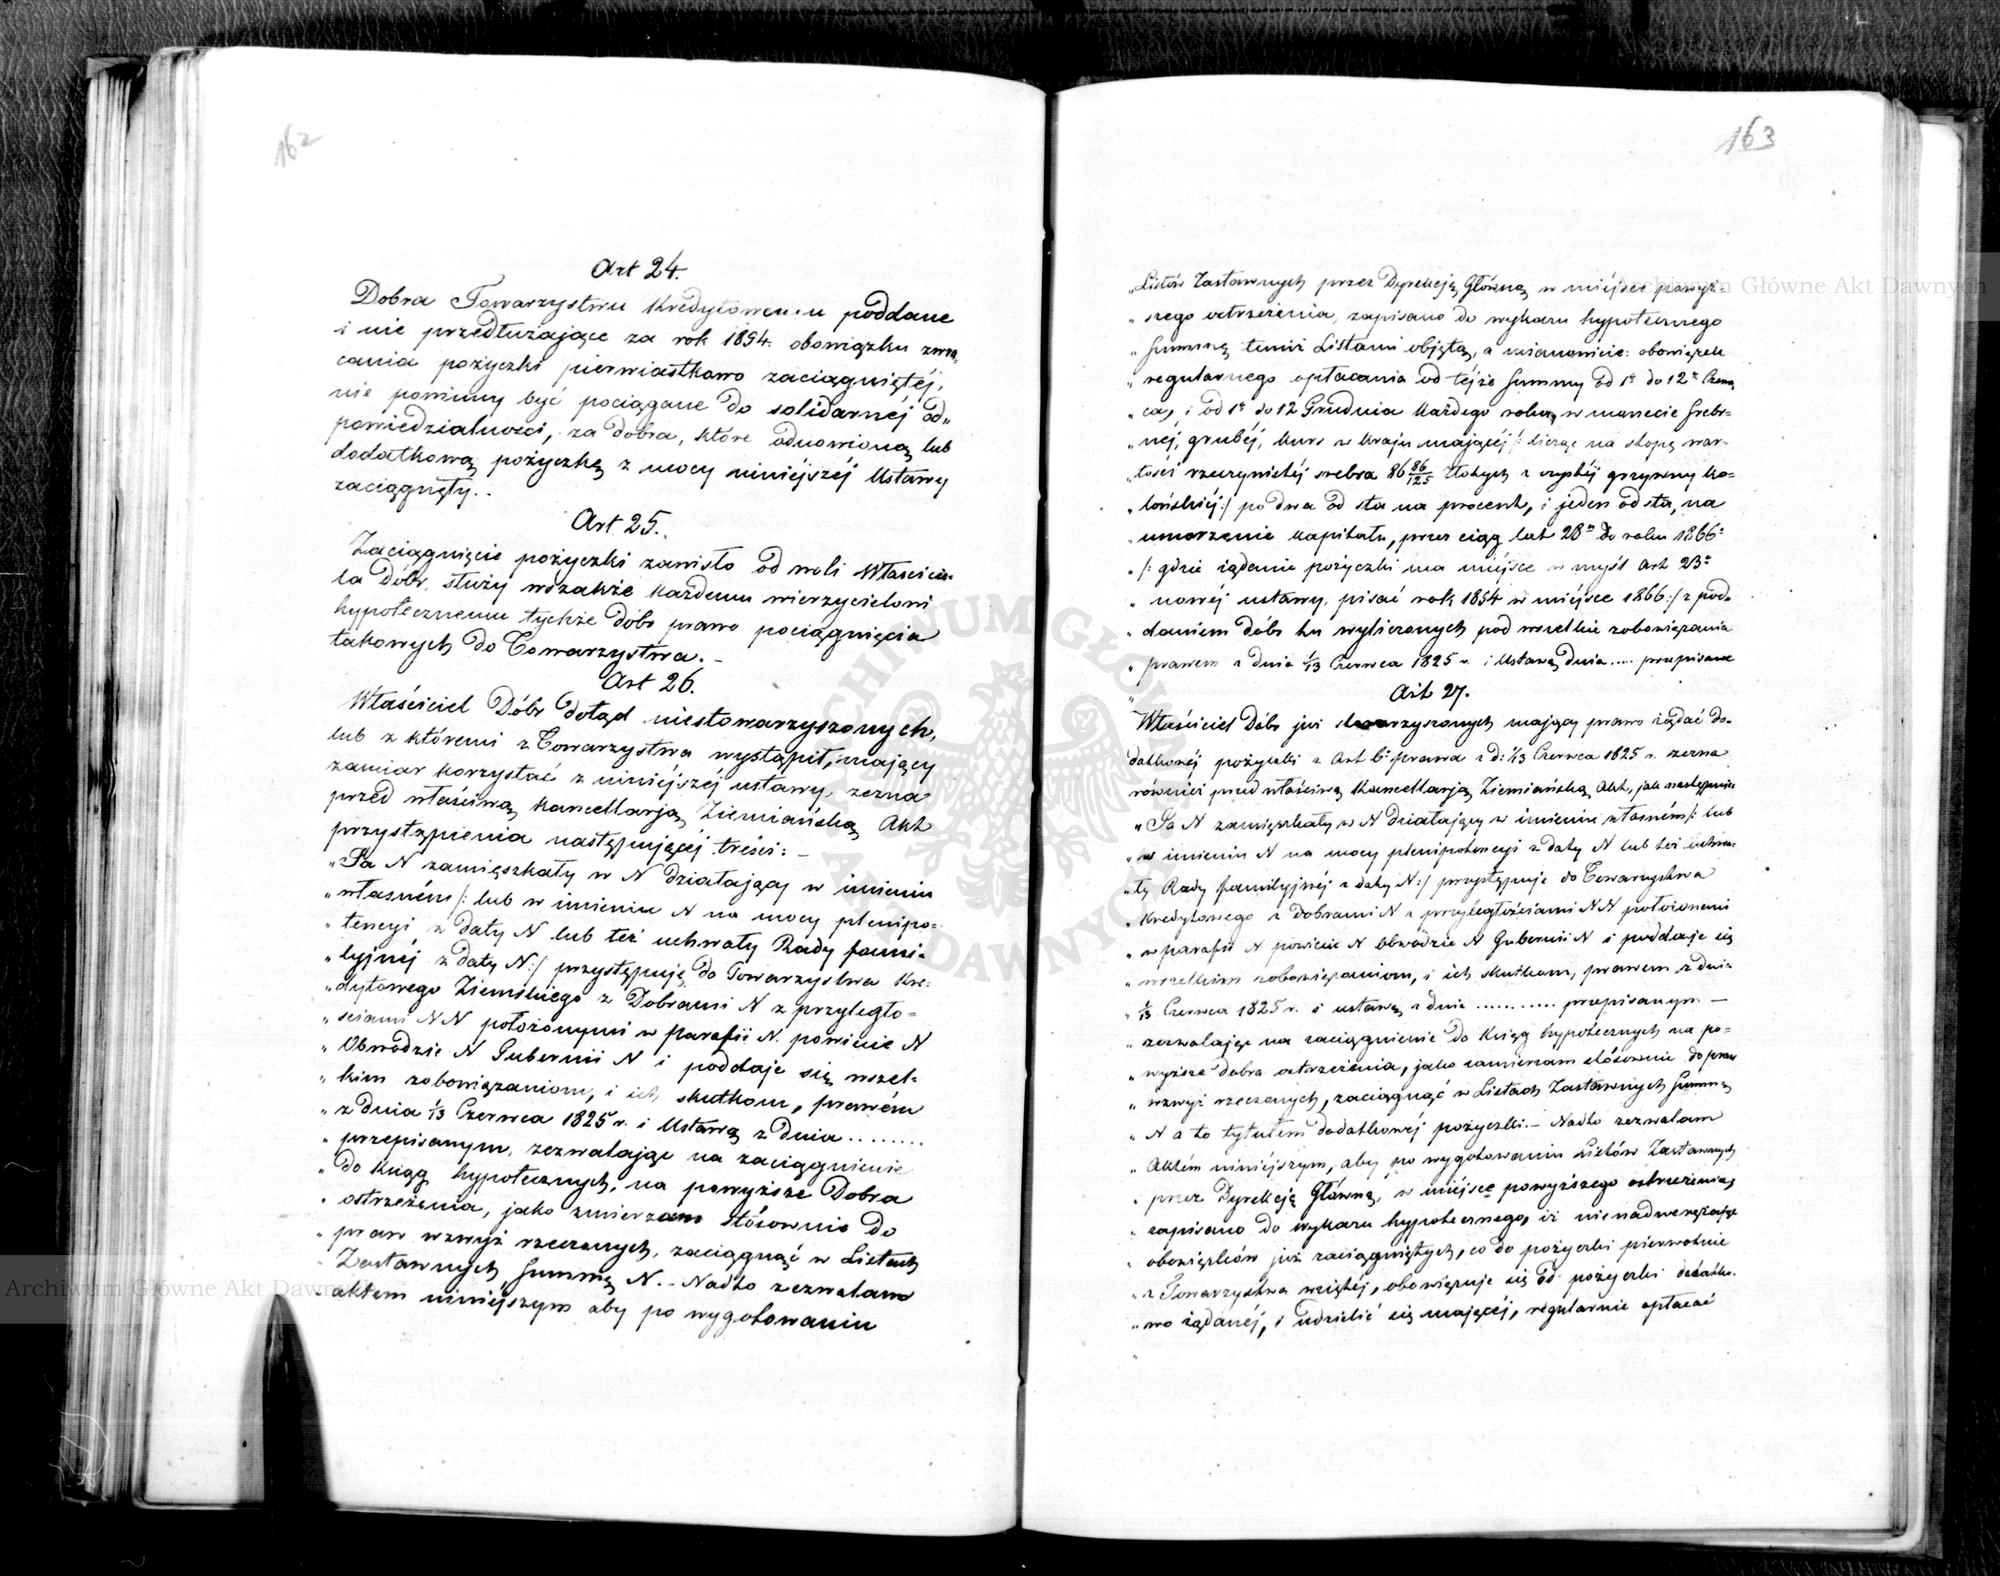 162
Art 24.
Dobra Towarzystwu Kredytowemu poddane
i nie przedłużające za rok 1854. obowiązku zwra-
cania pożyczki pierwiastkowo zaciągniętéj,
nie powinny być pociągane do solidarnéj od„
powiedzialności, za dobra, które odnowioną lub
dodatkową pożyczkę z mocy niniéjszéj Ustawy
zaciągnęły..
Art 25.
Zaciągnięcie pożyczki zawisło od woli Właścicie-
la Dóbr, służy wszakże każdemu wierzycielowi
hypotecznemu tychże dóbr prawo pociągnięcia
takowych do Towarzystwa.–
Art 26.
Właściciel Dóbr dotąd niestowarzyszonych,
lub z któremi z Towarzystwa wystąpił, mający
zamiar korzystać z niniéjszéj ustawy, zezna
przed właściwą Kancellarją Ziemiańską Akt
przystąpienia następującéj treści: –
„Ja N zamięszkały w N działający w imieniu
„własném /: lub w imieniu N na mocy plenipo=
„tencyi z daty N lub też uchwały Rady fami-
„lyjnéj z daty N:/ przystępuję do Towarzystwa Kre-
„dytowego Ziemskiego z Dobrami N z przyległo-
„ściami NN położonymi w Parafii N. powiecie N
„Obwodzie N Gubernii N i poddaje się wszel-
„kim zobowiązaniom, i ich skutkom, prawém
„z dnia 1/13 Czerwca 1825 r. i Ustawą z Dnia ........
„przepisanym, zezwalając na zaciągnienie
„do Ksiąg hypotecznych, na powyższe Dobra
„ostrzeżenia, jako zmierzam stósownie do
„praw wzwyż rzeczonych, zaciągnąć w Listach
„Zastawnych Summę N.– Nadto zezwalam
aktem niniejszym aby po wygotowaniu
163
„Listów Zastawnych przez Dyrekcją Główną w miéjsce powyż-
„szego ostrzeżenia, zapisano do wykazu hypotecznego
„Summę temiż Listami objętą, a mianowicie: obowiązek
„regularnego opłacania od téjże Summy od 1° do 12° Czerw
„ca, i od 1° do 12 Grudnia każdego roku, w monecie srebr-
„néj, grubéj, kurs w kraju mającéj /: licząc na stopę war-
„tości rzeczywistéj srebra 86 86/125 złotych z czystéj grzywny ko-
„lońskiéj:/ po dwa od sta na procent, i jeden od sta, na
„umorzenie kapitału, przez ciąg lat 28u do roku 1866:
„/: gdzie żądanie pożyczki ma miéjsce w myśl Art 23°
„nowéj ustawy, pisać rok 1854 w miéjsce 1866:/ z pod-
„daniem dóbr tu wyliczonych pod wszelkie zobowiązania
„prawem z dnia 1/13 Czerwca 1825 r. i Ustawą dnia ..... przepisane
Art 27.
Właściciel Dóbr już stowarzyszonych mający prawo żądać do-
datkowéj pożyczki z Art 6° prawa z d: 1/13 Czerwca 1825 r. zezna
również przed właściwą Kancellarją Ziemiańską Akt, jak następuie
„Ja N zamięszkały w N działający w imieniu własném /: lub
„w imieniu N na mocy plenipotencyi z daty N lub też uchwa-
„ły Rady familyjnéj z daty N:/ przystępuje do Towarzystwa
„Kredytowego z dobrami N z przyległościami NN położonemi
„w parafii N powiecie N Obwodzie N Gubernii N i poddaje się
„wszelkim zobowiązaniom, i ich skutkom, prawem z dnia
„1/13 Czerwca 1825 r. i ustawą z dnia ........... przepisanym –
„zezwalając na zaciągnienie do Ksiąg hypotecznych na po-
„wyższe dobra ostrzeżenia, jako zamierzam stósownie do praw
„wzwyż rzeczonych, zaciągnąć w Listach Zastawnych Summę
„N a to tytułem dodatkowéj pożyczki.– Nadto zezwalam
„Aktem niniéjszym, aby po wygotowaniu Listów Zastawnych
„przez Dyrekcją Główną, w miéjsce powyższego ostrzeżenia,
„zapisano do wykazu hypotecznego, iż nienadwerężając
„obowiązków już zaciągniętych, co do pożyczki pierwotnie
„z Towarzystwa wziętéj, obowiązuje się od pożyczki dodatko-
„wo żądanéj, i udzielić się mającéj, regularnie opłacać